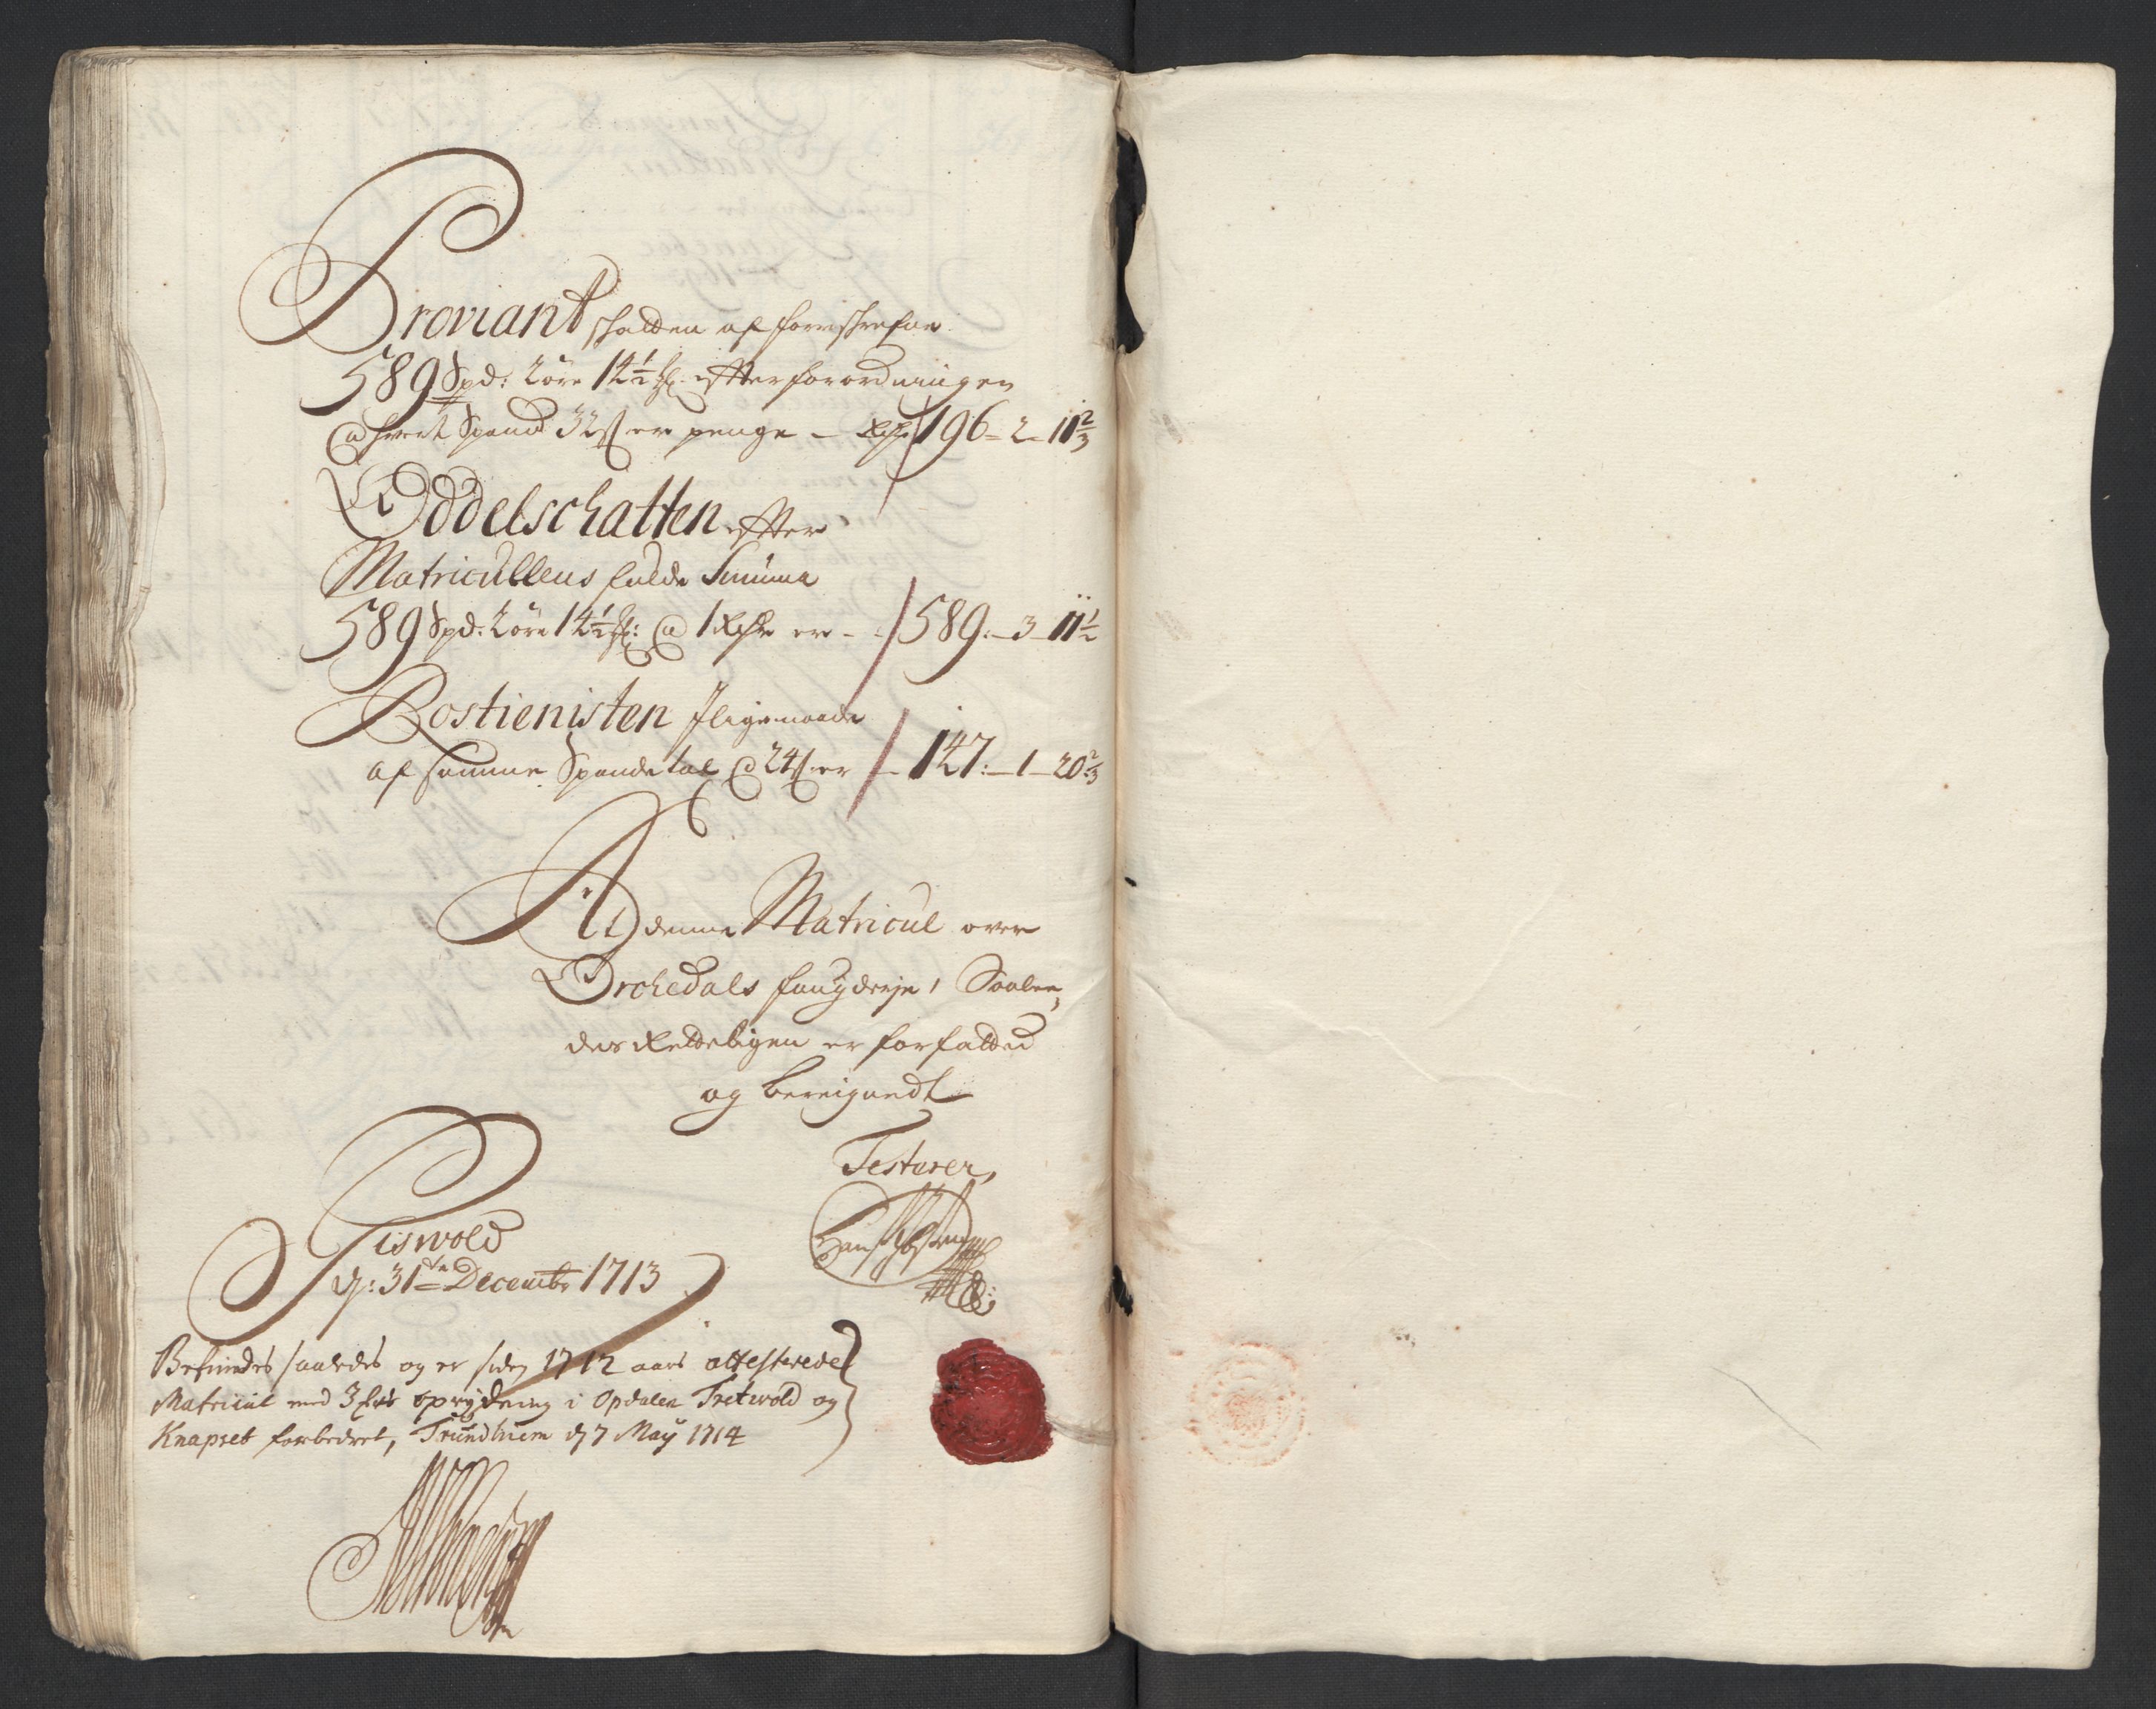 Proviant schatten af forreschrefne
589 Spd: 2öre 14½ ſl. effter forordningen
@ hvert Spand 32ſ er penge - Rdr 196 - 2 - 11⅔
Oddelschatten effter
Matricullens fulde Summa
589 Spd: 2öre 14½ ſl: @ 1 Rdr er - 589:- 3 - 11½
Rostienisten jligemaade
af samme Spandetal @ 24ſ er - 147:- 1 - 20⅔
At denne Matricul over
Orchedals faugderje, Saalee,
des Retteligen er forfatted
og bereignedt
Testerer,
Giswold
d: 31te Decembr 1713
Befindes saaledes og er siden 1712 aars attesterede
Matricul med opryduing i Opdalen Tretwold og
Knapset forbedret, Trundhiem d 7 May 1714